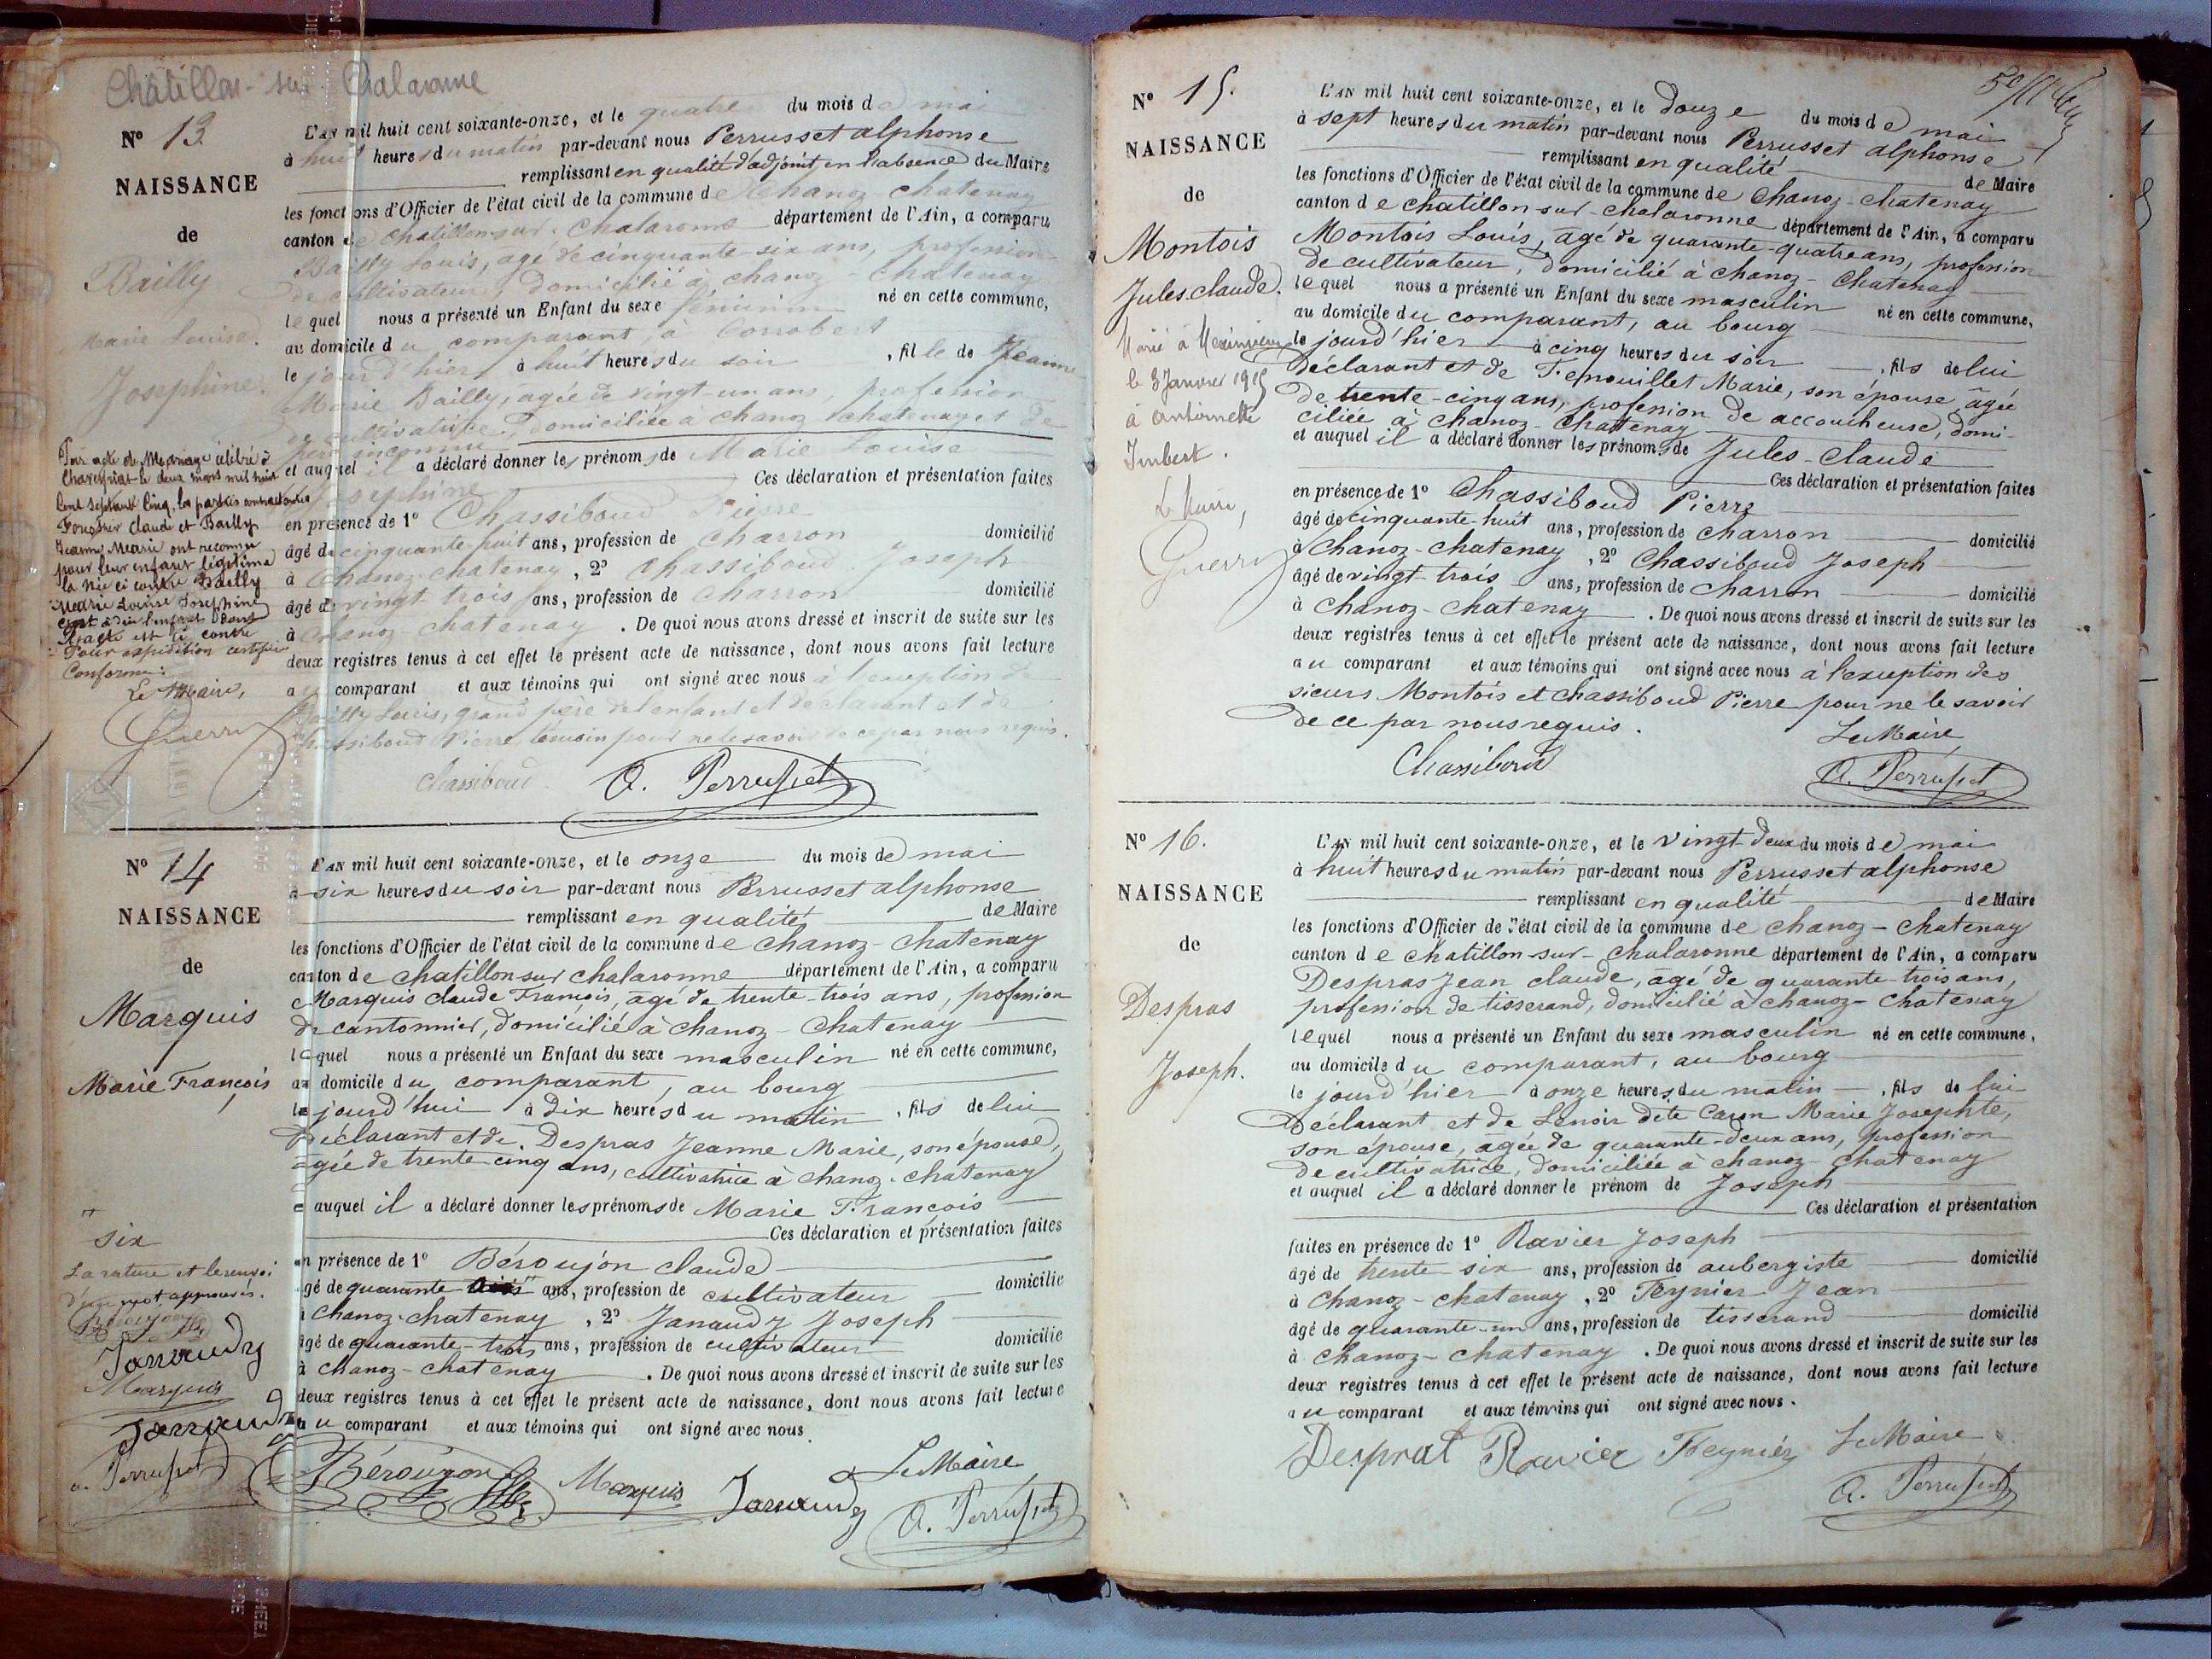 Châtillon-sur Chalaronne
N° 13
NAISSANCE
de
Bailly
Marie Louise
Josephine
L'AN mil huit cent soixante-onze, et le quatre du mois de mai
à huit heures du matin par-devant nous Perrusset alphonse
remplissant en qualité d'adjoint en l'absence du Maire
les fonctions d'Officier de l'état civil de la commune de chanoz chatenay
canton de chatillon-sur-Chalaronne département de l'Ain, a comparu
Bailly Louis, agé de cinquante-six ans, profession
de cultivateur, domicilié à chanoz - chatenay
lequel nous a présenté un Enfant du sexe féminin né en cette commune,
au domicile du comparant, a Corrobert
le jour d'hier, à huit heures du soir, fille de Jeanne
Marie Bailly, agée de vingt-un ans, profession
de cultivatrice, domiciliée à chanoz chatenay et de
père inconnu
et auquel il a déclaré donner les prénoms de Marie Louise
Josephine Ces déclaration et présentation faites
en présence de 1° Chassiboud Pierre
âgé de cinquante-huit ans, profession de charron domicilié
à Chanoz-chatenay, 2° Chassiboud Joseph
âgé de vingt trois ans, profession de charron domicilié
à chanoz-chatenay. De quoi nous avons dressé et inscrit de suite sur les
deux registres tenus à cet effet le présent acte de naissance, dont nous avons fait lecture
au comparant et aux témoins qui ont signé avec nous à l'exception de
Bailly Louis, grand père de l'enfant et déclarant et de
Chassiboud Pierre, témoin pour ne le savoir de ce par nous requis.
Chassiboud A. Perrusset
Par acte de Mariage célébré à
Chaveyriat le deux mars mil huit
cent septante cinq, les parties contractantes
Forestier Claude et Bailly
Jeanne Marie ont reconnu
pour leur enfant légitime
la née ci contre Bailly
Marie Louise Josephine
c'est à dire l'enfant dont
l'acte est ci contre
Pour expédition certifiée
Conforme:
Le Maire,
Guerry
N° 14
NAISSANCE
de
Marquis
Marie François
L'AN mil huit cent soixante-onze, et le onze du mois de mai
à six heures du soir par-devant nous Perrusset alphonse
remplissant en qualité de Maire
les fonctions d'Officier de l'état civil de la commune de chanoz-chatenay
canton de chatillon sur chalaronne département de l'Ain, a comparu
Marquis claude François, agé de trente-trois ans, profession
de cantonnier, domicilié à chanoz - Chatenay
lequel nous a présenté un Enfant du sexe masculin né en cette commune,
au domicile du comparant, au bourg
le jourd'hui à dix heures du matin, fils de lui
Déclarant et de Despras Jeanne Marie, son épouse,
agée de trente-cinq ans, cultivatrice à chanoz-chatenay
et auquel il a déclaré donner les prénoms de Marie François
Ces déclaration et présentation faites
en présence de 1° Béroujon claude
âgé de quarante " ans, profession de cultivateur domicilié
à Chanoz-chatenay, 2° Janaudy Joseph
âgé de quarante-trois ans, profession de cultivateur domicilié
à chanoz-chatenay. De quoi nous avons dressé et inscrit de suite sur les
deux registres tenus à cet effet le présent acte de naissance, dont nous avons fait lecture
au comparant et aux témoins qui ont signé avec nous.
Le Maire
Béroujon Marquis Janaudy A. Perrusset
" six
La rature et le renvoi
d'un mot approuvés.
Béroujon
Janaudy
Marquis
Janaudy
A. Perrusset
N° 15.
NAISSANCE
de
Montois
Jules claude.
Marié à Meximieux
le 3 Janvier 1915
à antoinette
Imbert.
Le Maire,
Guerry
L'AN mil huit cent soixante-onze, et le douze du mois de mai
à sept heures du matin par-devant nous Perrusset alphonse
remplissant en qualité de Maire
les fonctions d'Officier de l'état civil de la commune de Chanoz-chatenay
canton de chatillon-sur-chalaronne département de l'Ain, a comparu
Montois Louis, agé de quarante-quatre ans, profession
de cultivateur, domicilié à chanoz-Chatenay
lequel nous a présenté un Enfant du sexe masculin né en cette commune,
au domicile du comparant, au bourg
le jourd'hier à cinq heures du soir, fils de lui
Déclarant et de Fenouillet Marie, son épouse, agée
de trente-cinq ans, profession de accoucheuse, domi-
ciliée à chanoz-chatenay
et auquel il a déclaré donner les prénoms de Jules-Claude
Ces déclaration et présentation faites
en présence de 1° Chassiboud Pierre
âgé de cinquante-huit ans, profession de charron domicilié
à Chanoz-chatenay, 2° Chassiboud Joseph
âgé de vingt-trois ans, profession de charron domicilié
à chanoz-chatenay. De quoi nous avons dressé et inscrit de suite sur les
deux registres tenus à cet effet le présent acte de naissance, dont nous avons fait lecture
au comparant et aux témoins qui ont signé avec nous à l'exception des
sieurs Montois et chassiboud Pierre pour ne le savoir
de ce par nous requis.
Le Maire
Chassiboud A. Perrusset
N° 16.
NAISSANCE
de
Despras
Joseph.
L'AN mil huit cent soixante-onze, et le vingt deux du mois de mai
à huit heures du matin par-devant nous Perrusset alphonse
remplissant en qualité de Maire
les fonctions d'Officier de l'état civil de la commune de chanoz-chatenay
canton de chatillon-sur-chalaronne département de l'Ain, a comparu
Despras Jean claude, agé de quarante-trois ans,
profession de tisserand, domicilié à chanoz-chatenay
lequel nous a présenté un Enfant du sexe masculin né en cette commune,
au domicile du comparant, au bourg
le jourd'hier à onze heures du matin, fils de lui
Déclarant et de Lenoir dite Caron Marie Josephte,
son épouse, agée de quarante-deux ans, profession
de cultivatrice, domiciliée à chanoz-chatenay
et auquel il a déclaré donner le prénom de Joseph
Ces déclaration et présentation
faites en présence de 1° Ravier Joseph
âgé de trente-six ans, profession de aubergiste domicilié
à Chanoz-chatenay, 2° Feynier Jean
âgé de quarante-un ans, profession de tisserand domicilié
à chanoz-chatenay. De quoi nous avons dressé et inscrit de suite sur les
deux registres tenus à cet effet le présent acte de naissance, dont nous avons fait lecture
au comparant et aux témoins qui ont signé avec nous.
Desprat Ravier Feynier Le Maire
A. Perrusset